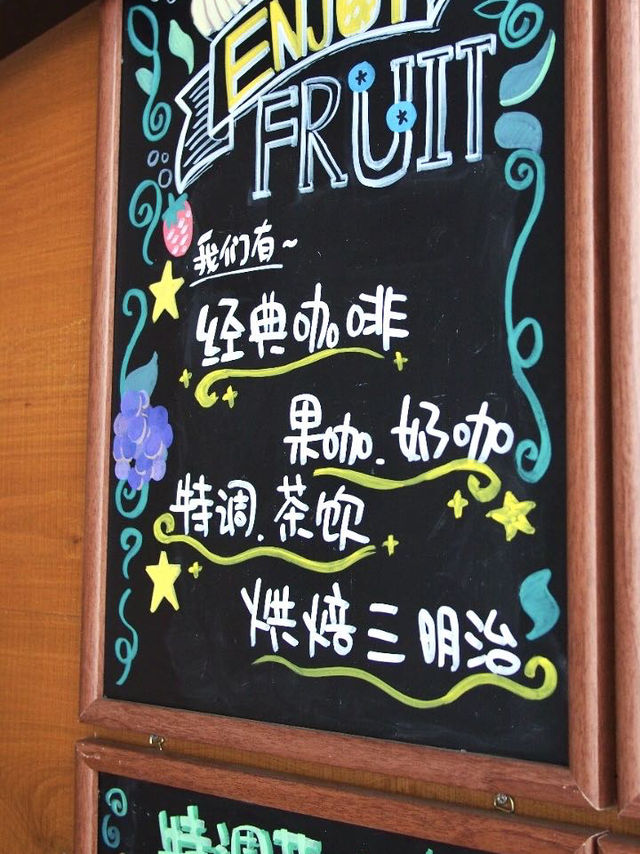 ENJOY
FRUIT
我们有~
经典咖啡
果咖.奶咖
特调.茶饮
烘焙三明治
特调茶